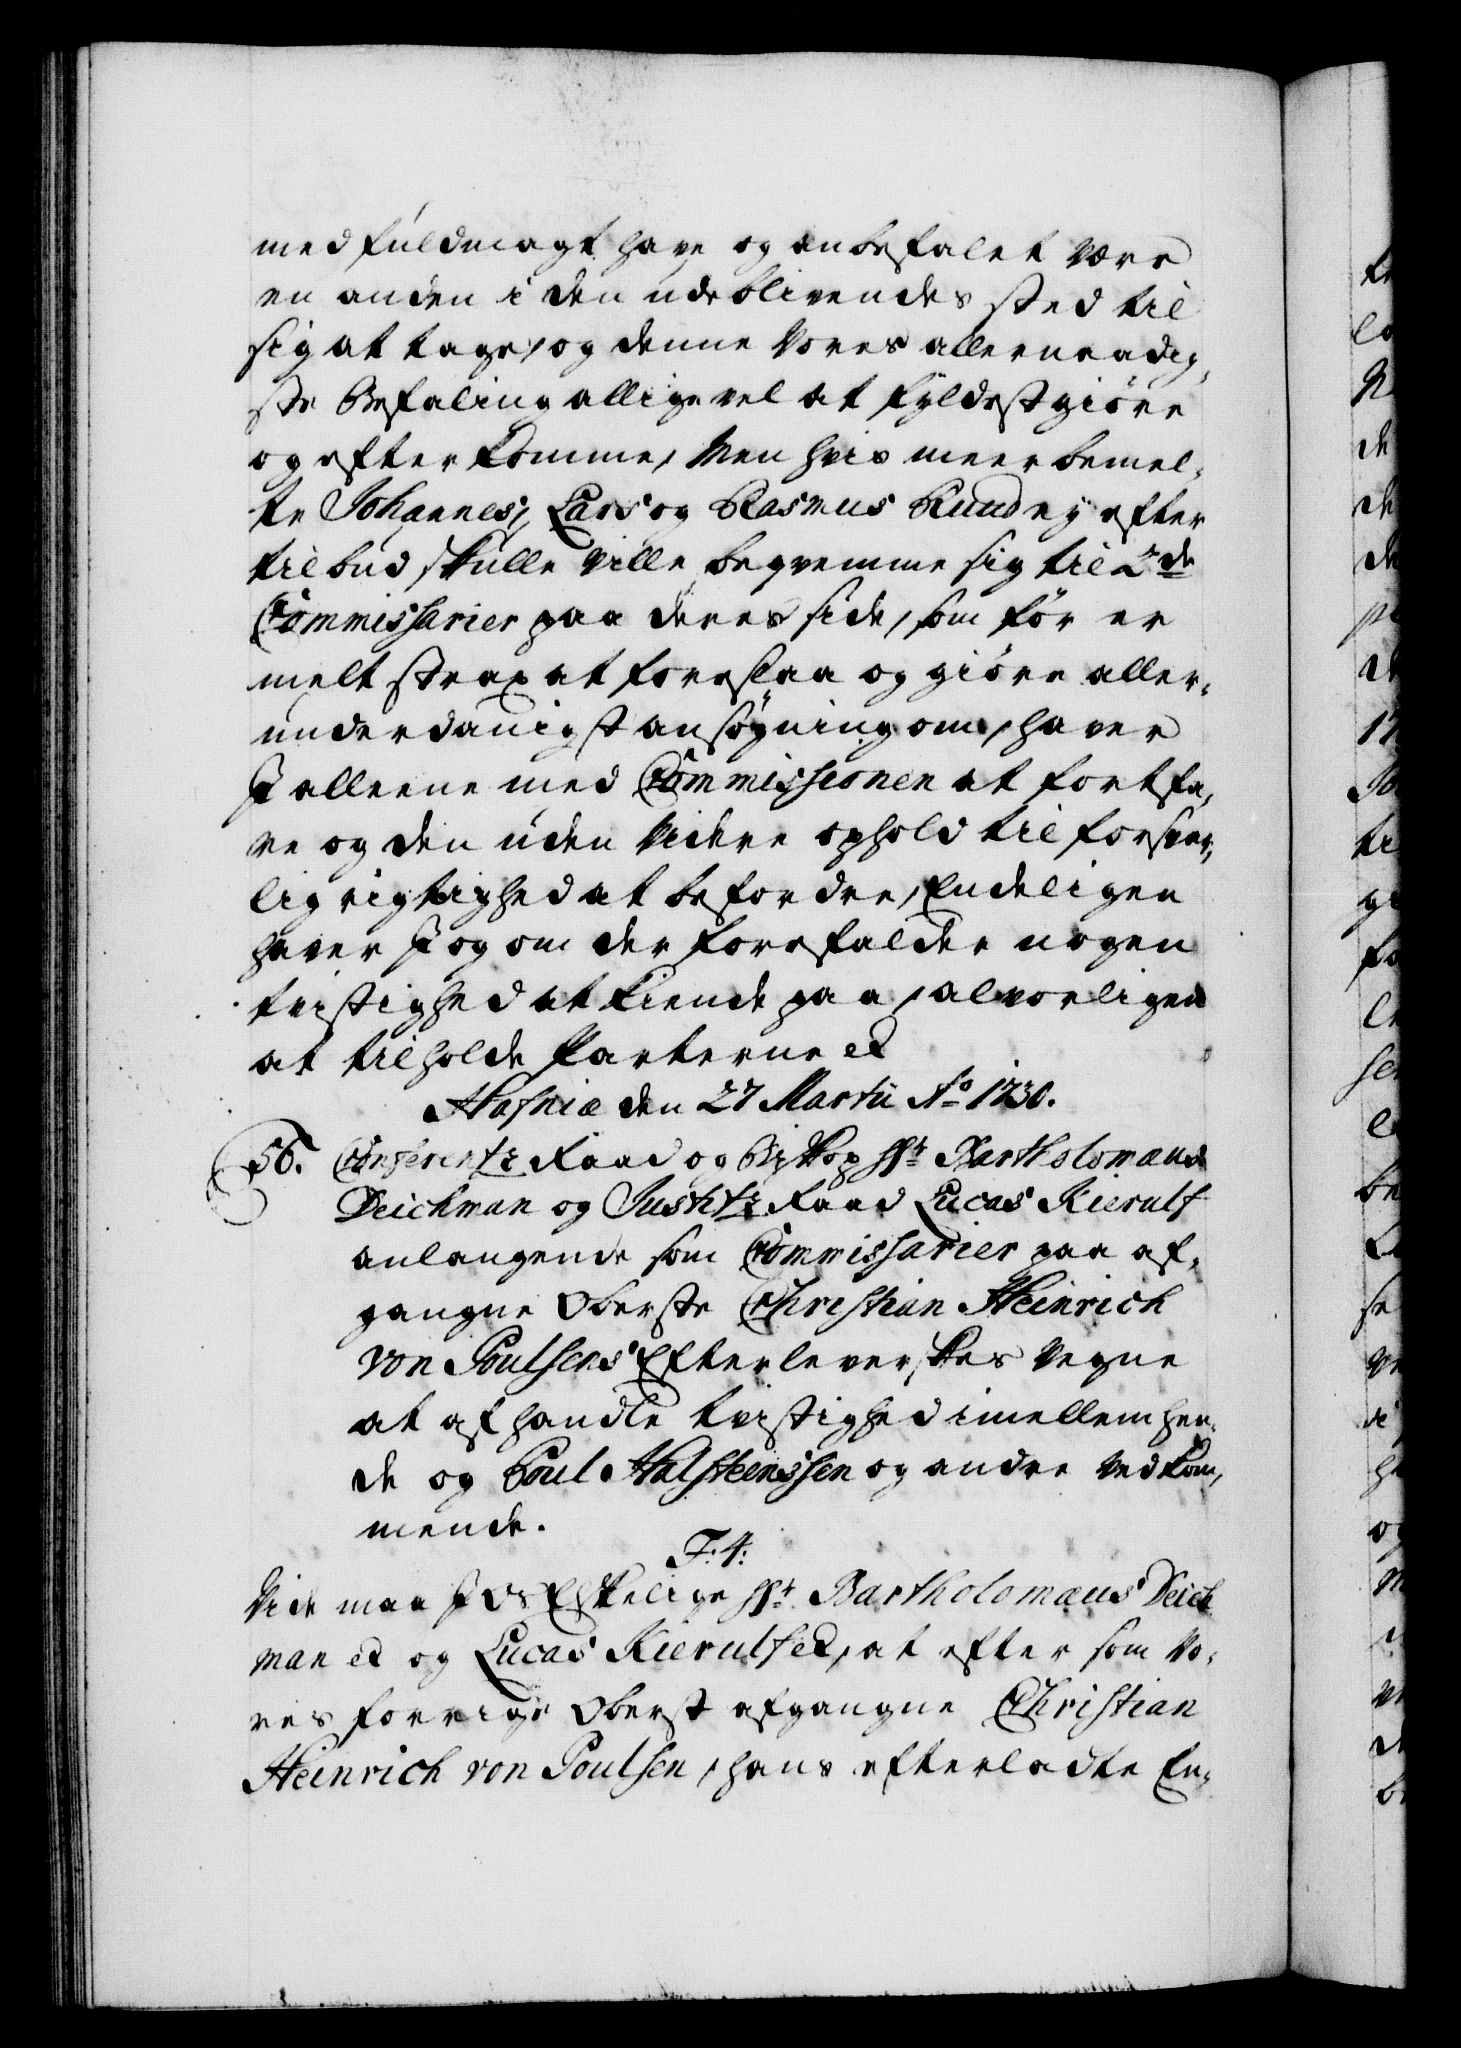 med fuldmagt have og anbefalet være
en anden i den udeblivendes sted til
sig at tage, og denne Vores allernaadig,
ste Befaling alligevel at fyldestgiöre
og efterkomme, Men hvis meerbemel,
te Johannes, Lars og Rasmus Ruud ey efter
tilbud skulle ville beqvemme sig til 2de
Commissarier paa deres side, som för er
melt strax at foreslaa og giöre aller,
underdanigst ansögning om, haver
I alleene med Commissionen at fortfa,
re og den uden videre ophold til forsvar,
lig rigtighed at befordre, Endeligen
haver I og om der forefalder nogen
tvistighed at kiende paa, alvorligen
at tilholde Parterne &
Hafniæ den 27 Martii Ao 1730.
56. Conferentz Raad og Biskop Hr. Bartholomæus
Deichman og Justitz Raad Lucas Kierulf
anlangende som Commissarier paa af,
gangne Oberste Christian Heinrich
von Poulsens Efterleverskes Vegne
at afhandle tvistighed imellem hen,
de og Poul Halsteenssen og andre Vedkom,
mende.
F: 4:
Vide maa I Os Elskelige Hr. Bartholomæus Deich
man & og Lucas Kierulf &, at eftersom Vo,
res forrige Oberst afgangne Christian
Heinrich von Poulsen, hans efterladte En,